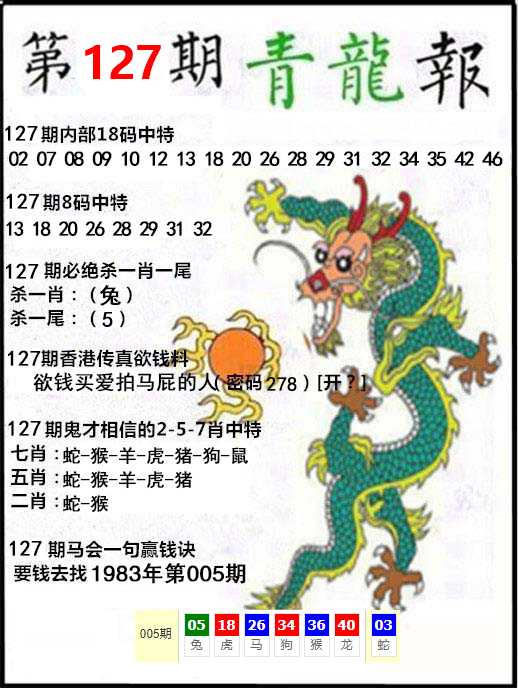 第127期青龍報
127期内部18码中特
02 07 08 09 10 12 13 18 20 26 28 29 31 32 34 35 42 46
127期8码中特
13 18 20 26 28 29 31 32
127 期必绝杀一肖一尾
杀一肖：（兔）
杀一尾：（5）
127期香港传真欲钱料
欲钱买爱拍马屁的人(密码278)[开？]
127期鬼才相信的2-5-7肖中特
七肖：蛇-猴-羊-虎-猪-狗-鼠
五肖：蛇-猴-羊-虎-猪
二肖：蛇-猴
127 期马会一句赢钱诀
要钱去找1983年第005期
005期 05 18 26 34 36 40 03
兔 虎 马 狗 猴 龙 蛇